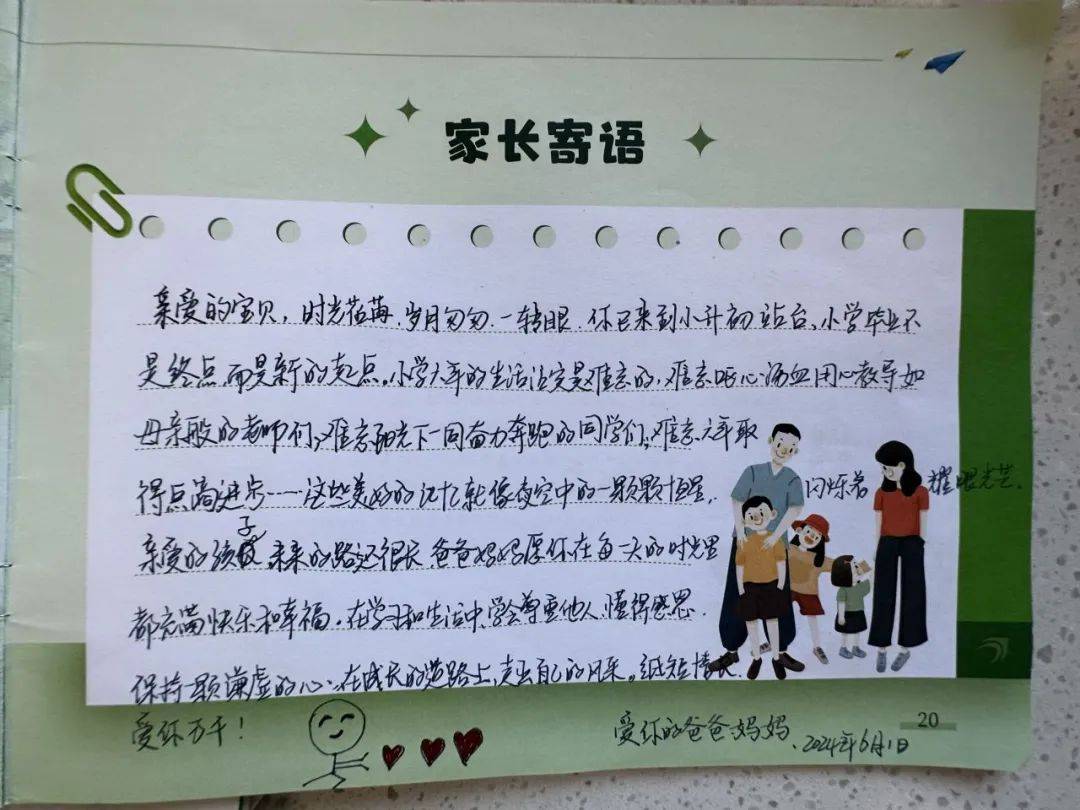 家长寄语
亲爱的宝贝，时光荏苒，岁月匆匆，一转眼，你已来到小升初站台，小学毕业不
是终点，而是新的起点。小学六年的生活注定是难忘的，难忘呕心沥血用心教导如
母亲般的老师们，难忘阳光下一同奋力奔跑的同学们，难忘六年取
得点滴进步……这些美好的记忆就像夜空中的一颗颗恒星，闪烁着耀眼光芒。
亲爱的孩子，未来的路还很长，爸爸妈妈愿你在每一天的时光里
都充满快乐和幸福。在学习和生活中，学会尊重他人，懂得感恩，
保持一颗谦虚的心，在成长的道路上，走出自己的风采。纸短情长，
爱你万千！
爱你的爸爸妈妈
2024年6月1日
20